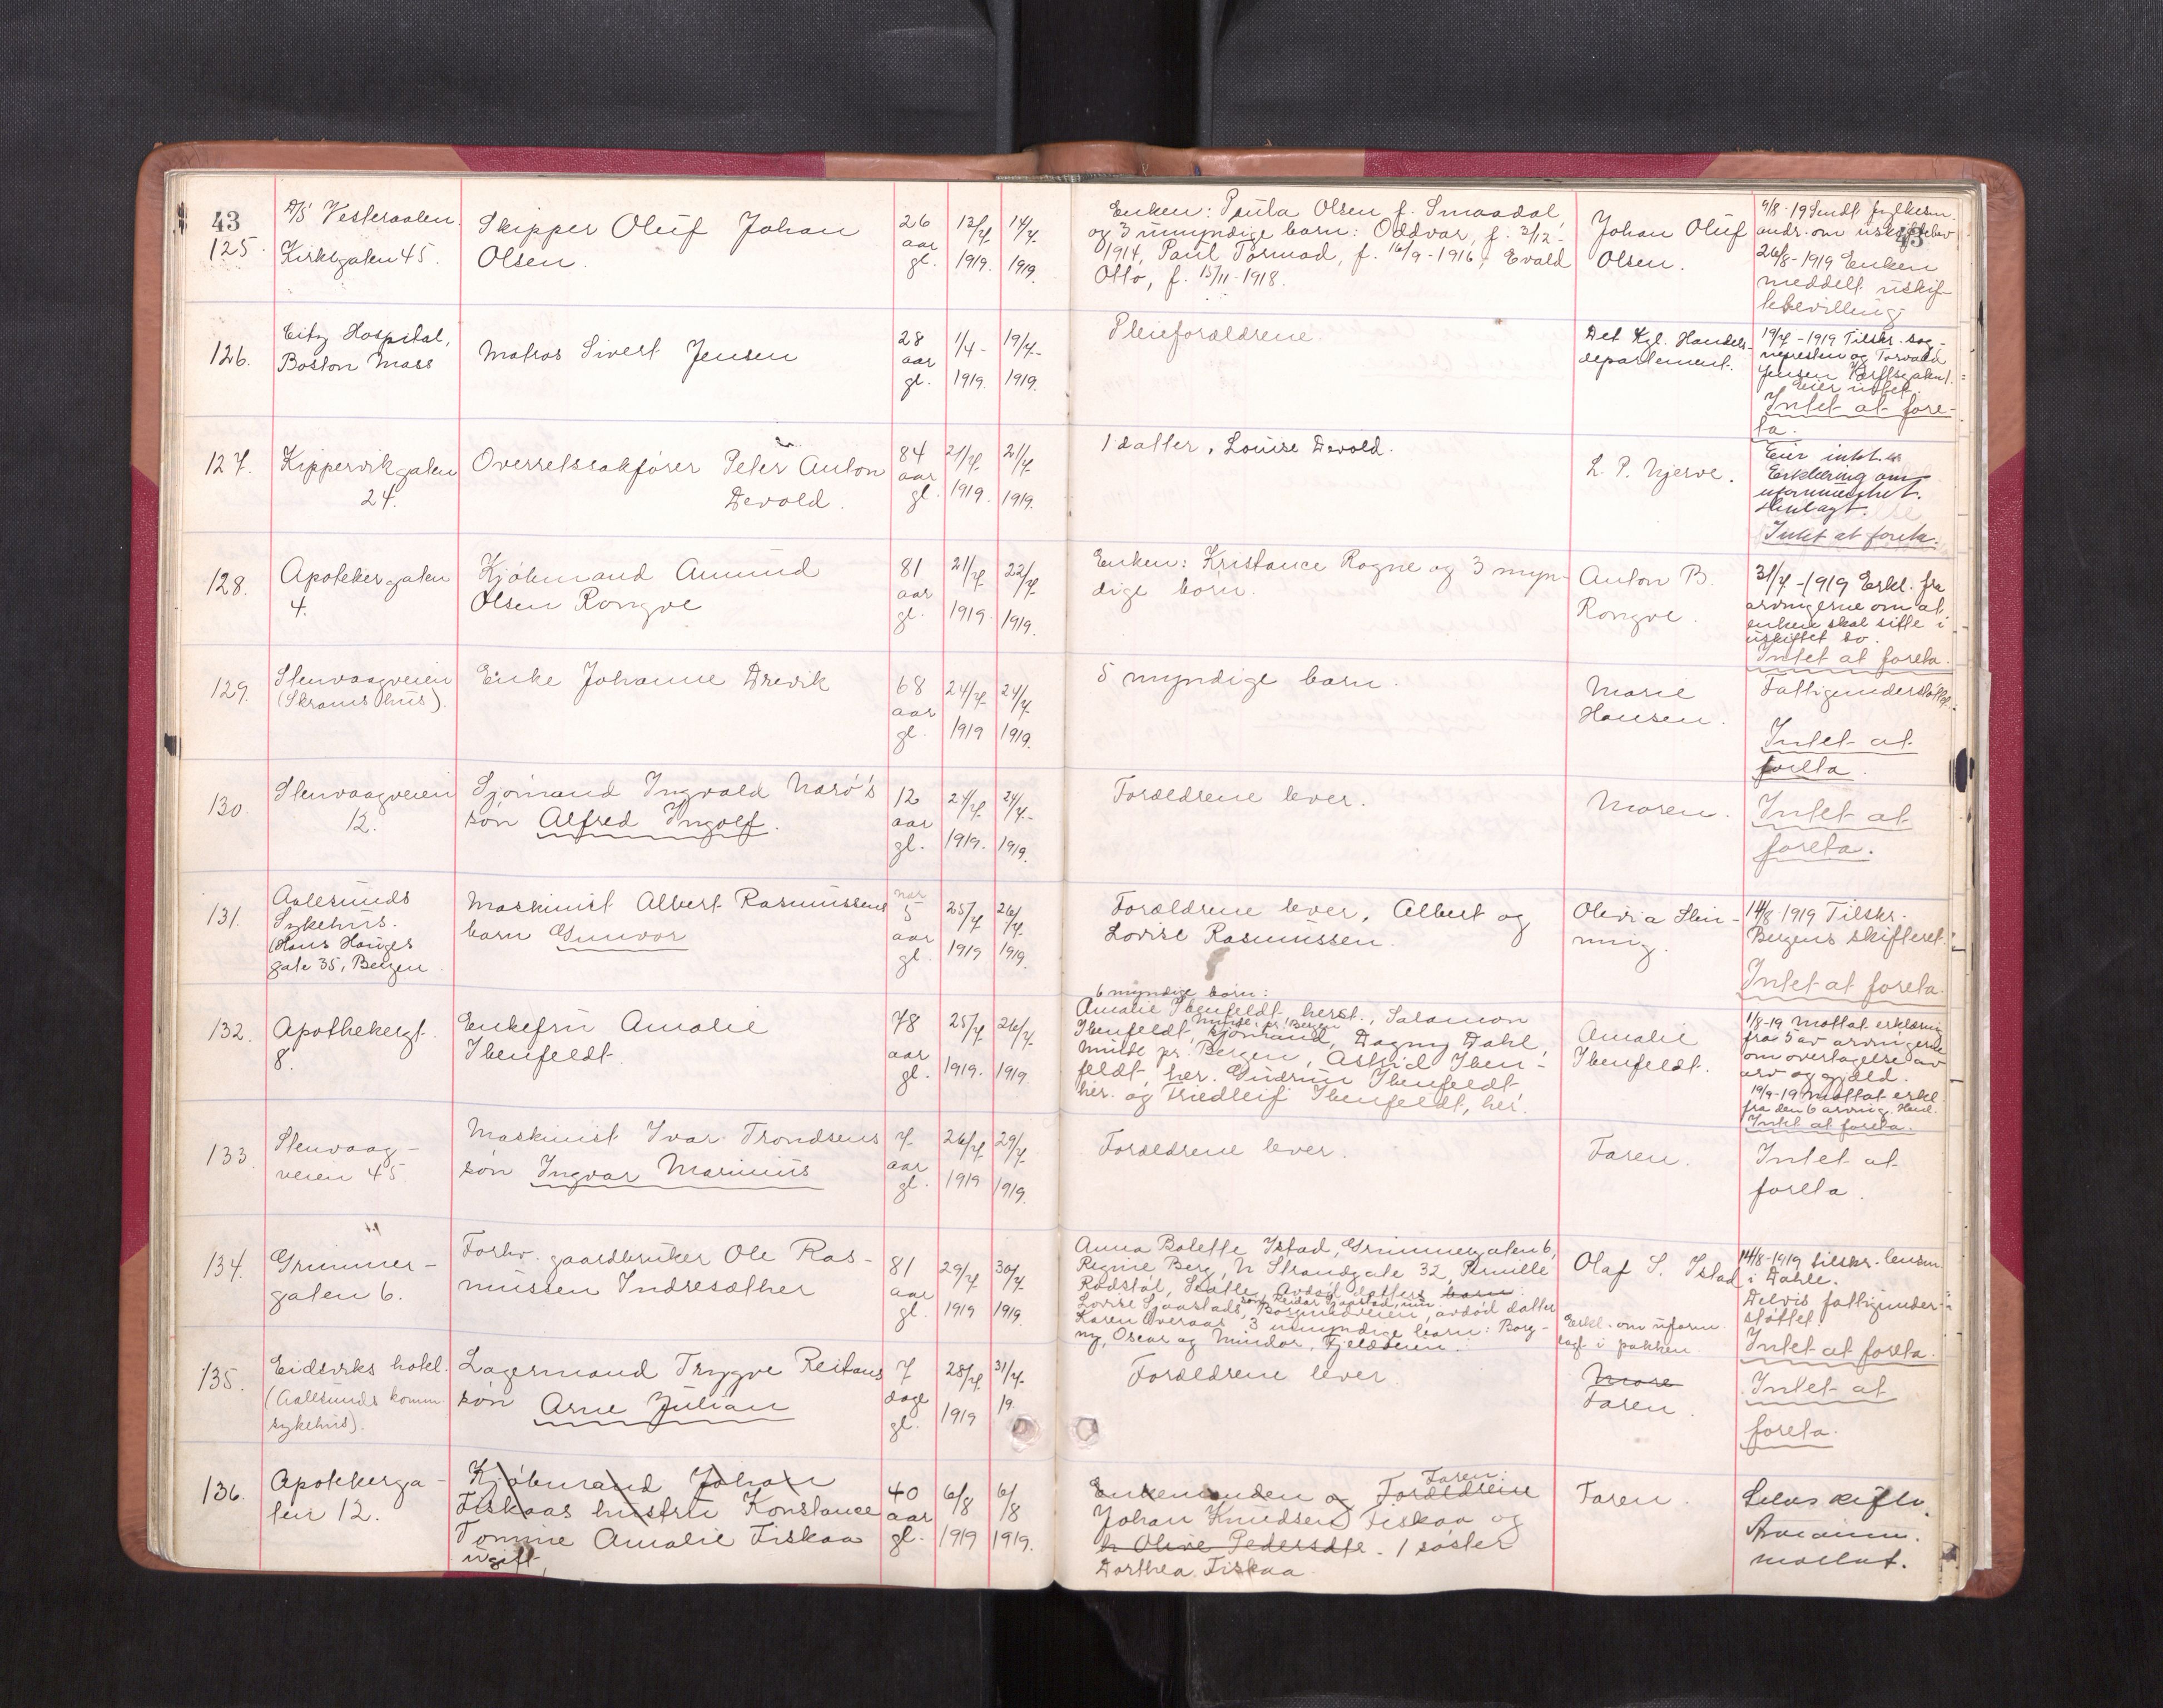 43
125.
D/S Vesteraalen.
Kirkegaten 45.
Skipper Oluf Johan
Olsen.
26
aar
gl.
13/7
1919.
14/7
1919.
Enken: Paula Olsen f. Smaadal,
og 3 umyndige barn: Oddvar, f. 3/12-
1914, Paul Tormod, f. 16/9-1916, Evald
Otto, f. 15/11-1918.
Johan Oluf
Olsen.
43
9/8-19 Sendt fylkesm.
26/8-1919 Enken
meddelt uskif-
tebevilling
126.
City Hospital,
Boston Mass
Matros Sivert Jensen
28
aar
gl.
1/4-
1919.
19/7-
1919.
Pleieforældrene.
Det Kgl. Handels-
departement.
19/7-1919 Tilskr. sog-
nepresten og Torvald
Jensen
Eier intet.
Intet at fore-
ta.
127.
Kippervikgaten
24.
Overretssakfører Peter Anton
Devold.
84
aar
gl.
21/7
1919.
21/7
1919.
1 datter, Louise Devold.
L. P. Njerve.
Eier intet.
Erklæring om
uformuenhet.
Henlagt.
Intet at foreta.
128.
Apotekergaten
4.
Kjøbmand Amund
Olsen Rongve
81
aar
gl.
21/7
1919.
22/7
1919.
Enken: Kristance Rogne og 3 myn-
dige børn.
Anton B.
Rongve.
31/7-1919 Erkl. fra
arvingerne om at
enken skal sitte i
uskiftet bo.
Intet at foreta.
129.
Stenvaagveien
(Skrams hus).
Enke Johanne Drevik
68
aar
gl.
24/7-
1919
24/7-
1919.
5 myndige barn.
Marie
Hansen.
Fattigunderstøttet.
Intet at
foreta.
130.
Stenvaagveien
12.
Sjømand Ingvald Narø's
søn Alfred Ingolf.
12
aar
gl.
24/7-
1919.
24/7-
1919.
Forældrene lever.
Moren.
Intet at
foreta.
131.
Aalesunds
Sykehus.
(Hans Hauges
gate 35, Bergen
Maskinist Albert Rasmussens
barn Gunvor
nær
5
aar
gl.
25/7
1919
26/7
1919.
Forældrene lever, Albert og
Lovise Rasmussen.
Olivia Slin-
ning.
14/8 1919 Tilskr.
Bergens skifteret.
Intet at foreta.
132.
Apothekergt.
8.
Enkefru Amalie
Ibenfeldt.
78
aar
gl.
25/7
1919.
26/7-
1919.
6 myndige børn:
Amalie Ibenfeldt herst., Salamon
Ibenfeldt, sjømand, Dagny Dahl,
Minde pr. Bergen
Minde pr. Bergen, Astrid Iben-
feldt, her. Gudrun Ibenfeldt
her. og Friedleif Ibenfeldt, her.
Amalie
Ibenfeldt.
1/8-19 Mottat erklæring
fra 5 av arvingerne
om overtagelse av
arv og gjæld.
19/9-19 Mottat erkl.
fra den 6 arving. Henl.
Intet at foreta.
133.
Stenvaag-
veien 45.
Maskinist Ivar Trondsens
søn Ingvar Marinius
7
aar
gl.
26/7
1919
29/7-
1919.
Forældrene lever.
Faren.
Intet at
foreta.
134.
Grimmer-
gaten 6.
Forhv. gaardbruker Ole Ras-
mussen Indresæther
81
aar
gl.
29/7
1919
30/7-
1919.
Anna Bolette Istad, Grimmergaten 6,
Regine Berg, N Strandgate 32, Pernille
Rødstøl, avdød datters barn:
Lovise Sjaastads, avdød datter
Karen Overaas, 3 umyndige barn: Borg-
ny, Oscar og Mindor, Fjeldveien.
Olaf S. Istad
Erkl. om uform.
lagt i pakken.
14/8-1919 tilskr. lensm.
i Dahle.
Delvis fattigunder-
støttet
Intet at foreta.
135.
Eidsviks hotel.
(Aalesunds komm.
sykehus).
Lagermand Trygve Reitans
søn Arne Julian
7
dage
gl.
28/7
1919
31/7-
19.
Forældrene lever.
More
Faren.
Intet at
foreta.
136.
Apotekerga-
ten 12.
Kjøbmand Johan
Fiskaas hustru Konstance
Tomine Amalie Fiskaa
ugift,
40
aar
gl.
6/8
1919
6/8
1919.
Enkemanden og Forældrene
Faren:
Johan Knudsen Fiskaa og
h Olive Pedersdtr. 1 søster
Dorthea Fiskaa.
Faren.
Selvskifte.
mottat.